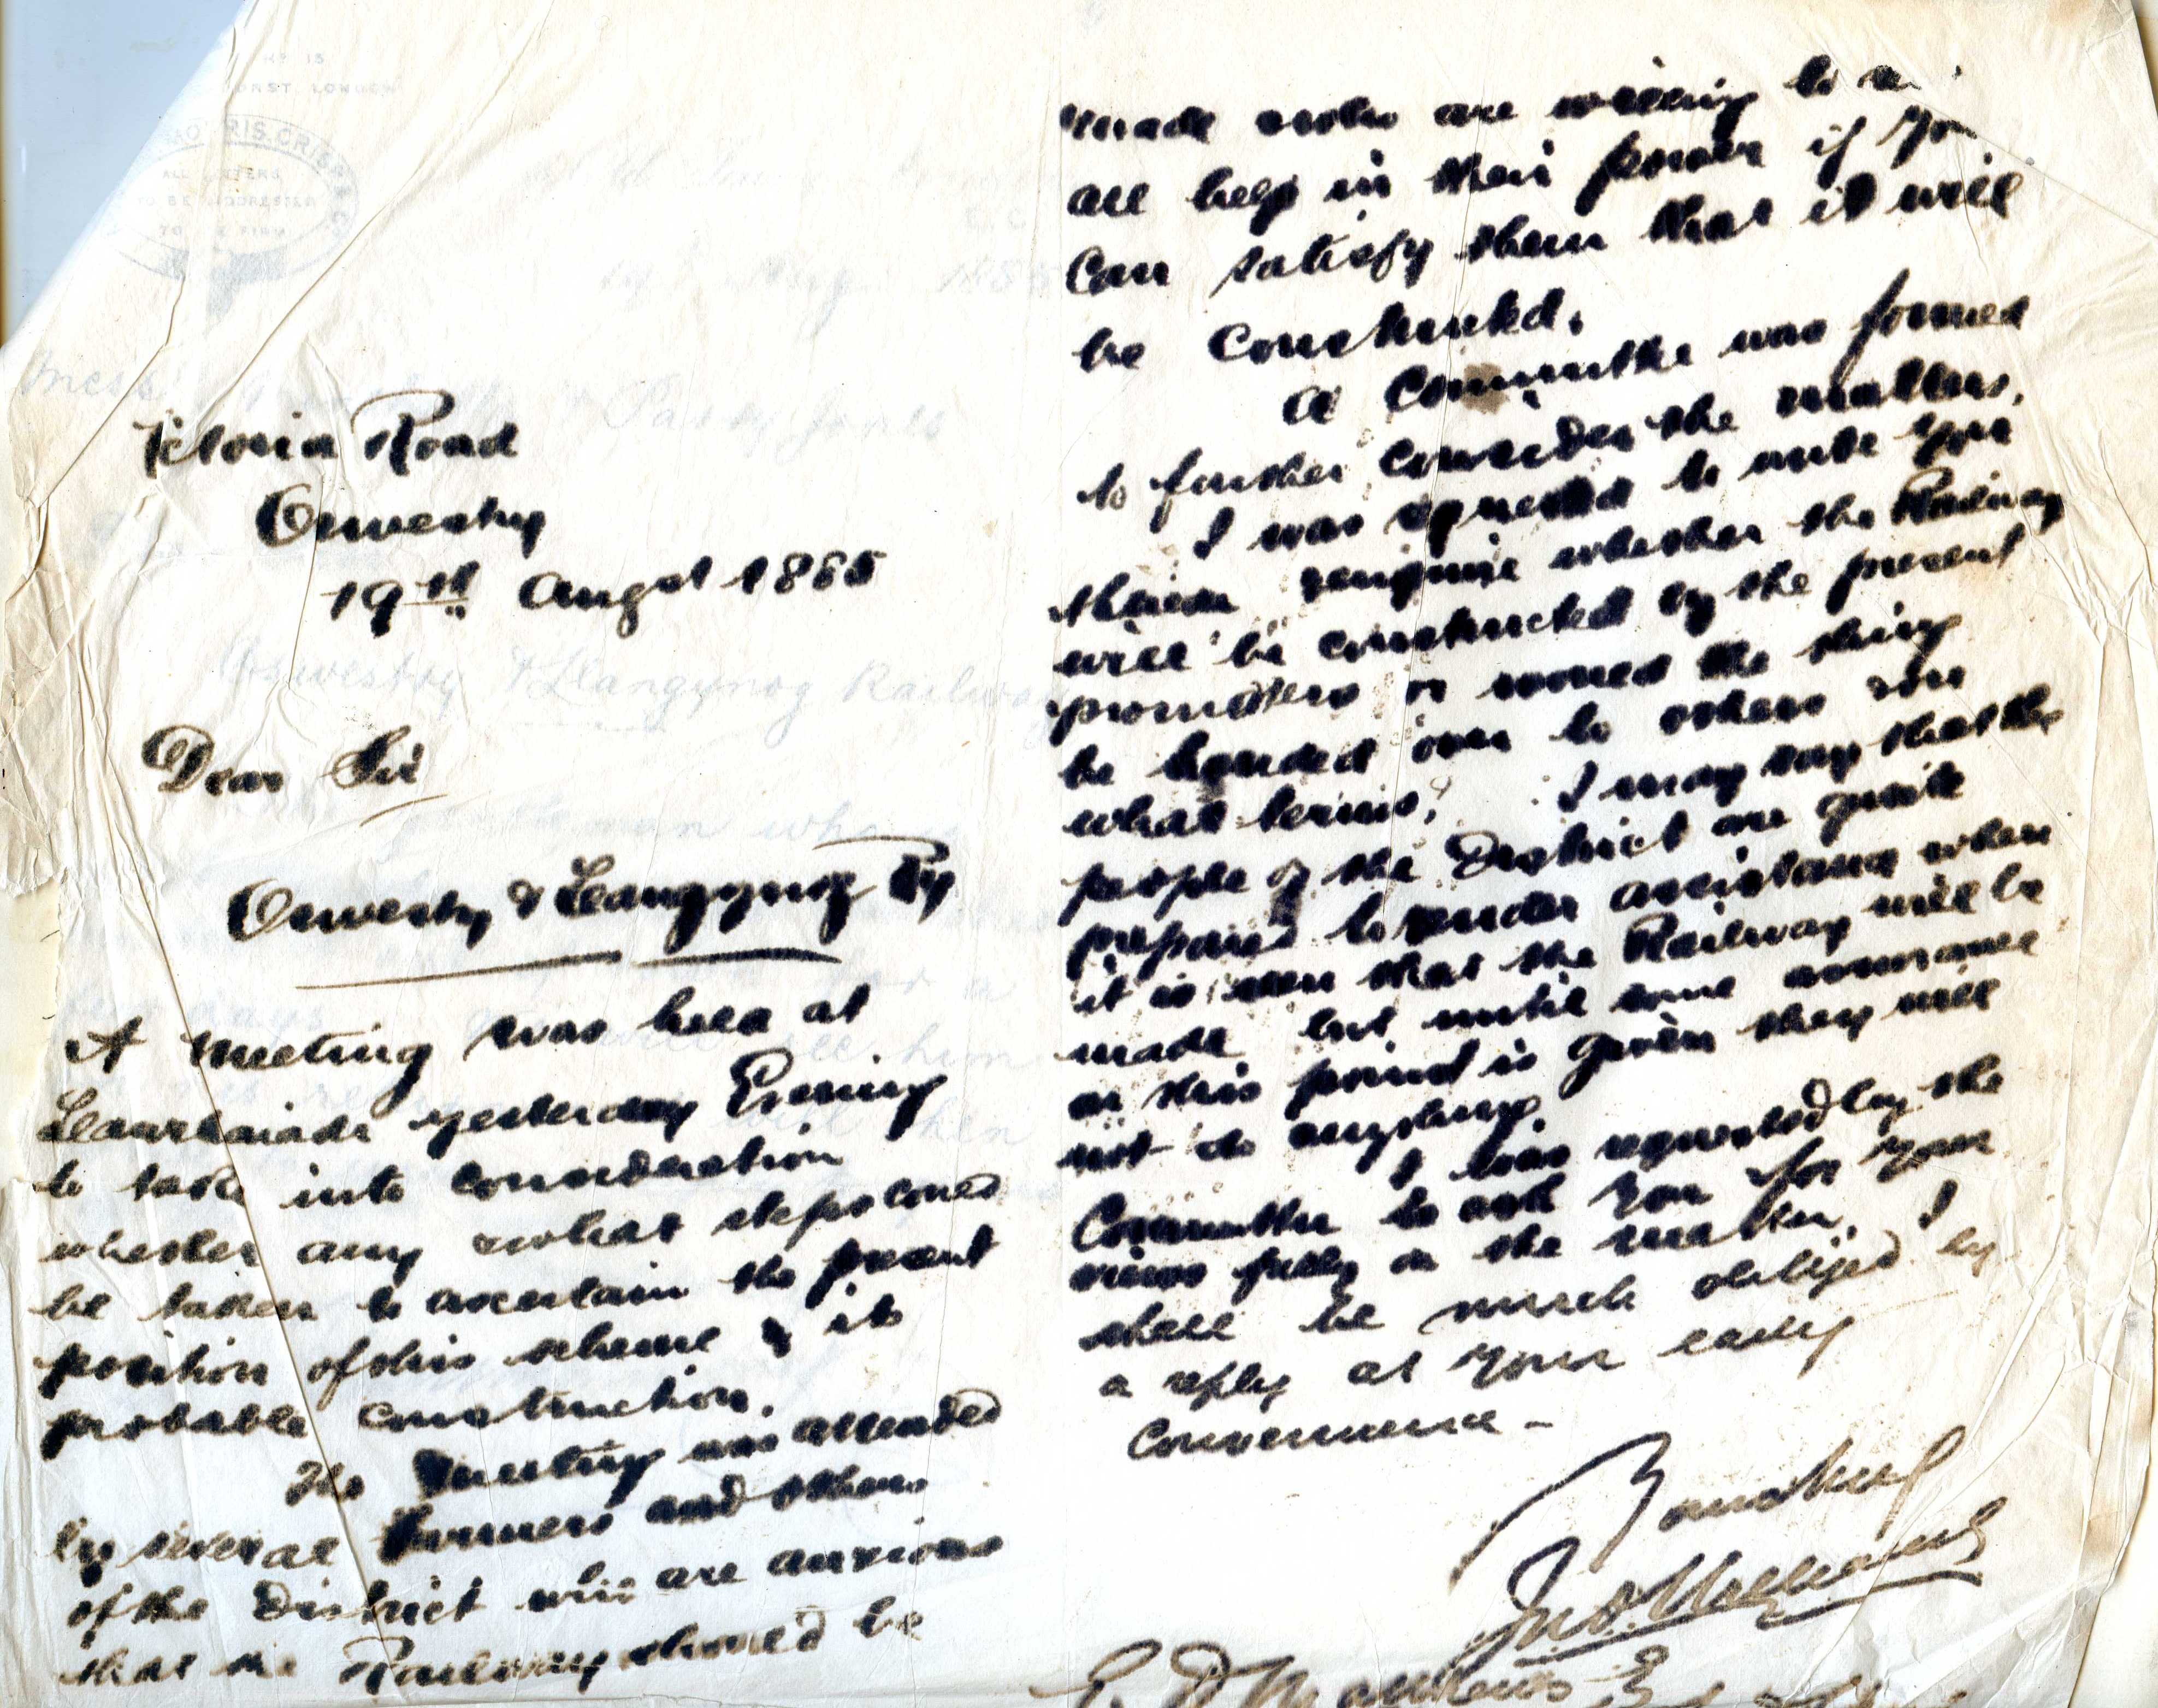 Victoria Road
Oswestry
19th Augst 1885
Dear Sir
Oswestry & Llangynog Ry
A meeting was held at
Llanrhaiadr yesterday Evening
to take into consideration
whether any & what steps could
be taken to ascertain the present
position of this scheme & its
probable construction.
The meeting was attended
by several farmers and others
of the District who are anxious
that the Railway should be
made & who are willing to
all help in their power if you
can satisfy them that it will
be Constructed.
A Committee was formed
to further consider the matters.
I was requested to write you
& enquire whether the Railway
will be constructed by the present
promoters or would the thing
be handed over to others & on
what terms? I may say that the
people of the District are quite
prepared to render assistance when
it is seen that the Railway will be
made but until some assurance
on this point is given they will
not do anything.
I was requested by the
Committee to ask you for your
views fully on the matter. I
shall be much obliged by
a reply at your early
convenience –
Yours truly
E. D. Matthews Esq
Oswestry & Llangynog Railway
1885
Parry Jones
ALL LETTERS
TO BE ADDRESSED
TO THE FIRM
LONDON